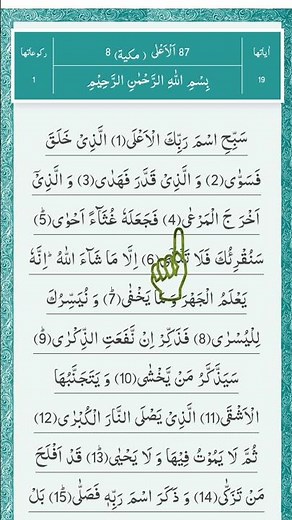 آياتها
87 اَلْاَعْلٰى ( مكية ) 8
ركوعاتها
19
بِسْمِ اللّٰهِ الرَّحْمٰنِ الرَّحِيْمِ
1
سَبِّحِ اسْمَ رَبِّكَ الْاَعْلَى(1) الَّذِىْ خَلَقَ
فَسَوّٰى(2) وَ الَّذِىْ قَدَّرَ فَهَدٰى(3) وَ الَّذِىْۤ
اَخْرَ جَ الْمَرْعٰى(4) فَجَعَلَهٗ غُثَآءً اَحْوٰى(5)
سَنُقْرِئُكَ فَلَا (6) اِلَّا مَا شَآءَ اللّٰهُ ؕ اِنَّهٗ
يَعْلَمُ الْجَهْرَ يَخْفٰى(7) وَ نُيَسِّرُكَ
لِلْيُسْرٰى(8) فَذَكِّرْ اِنْ نَّفَعَتِ الذِّكْرٰى(9)
سَيَذَّكَّرُ مَنْ يَّخْشٰى(10) وَ يَتَجَنَّبُهَا
الْاَشْقَى(11) الَّذِىْ يَصْلَى النَّارَ الْكُبْرٰى(12)
ثُمَّ لَا يَمُوْتُ فِيْهَا وَ لَا يَحْيٰى(13) قَدْ اَفْلَحَ
مَنْ تَزَكّٰى(14) وَ ذَكَرَ اسْمَ رَبِّهٖ فَصَلّٰى(15) بَلْ